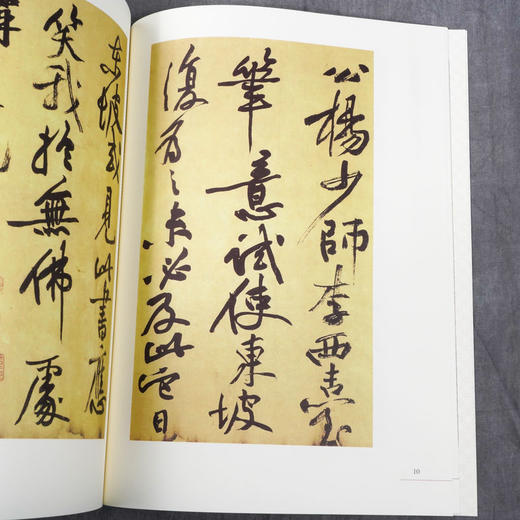 公楊少師李西臺
筆意試使東坡
復為之未必及此它日
東坡或見此書應
笑我於無佛處
10